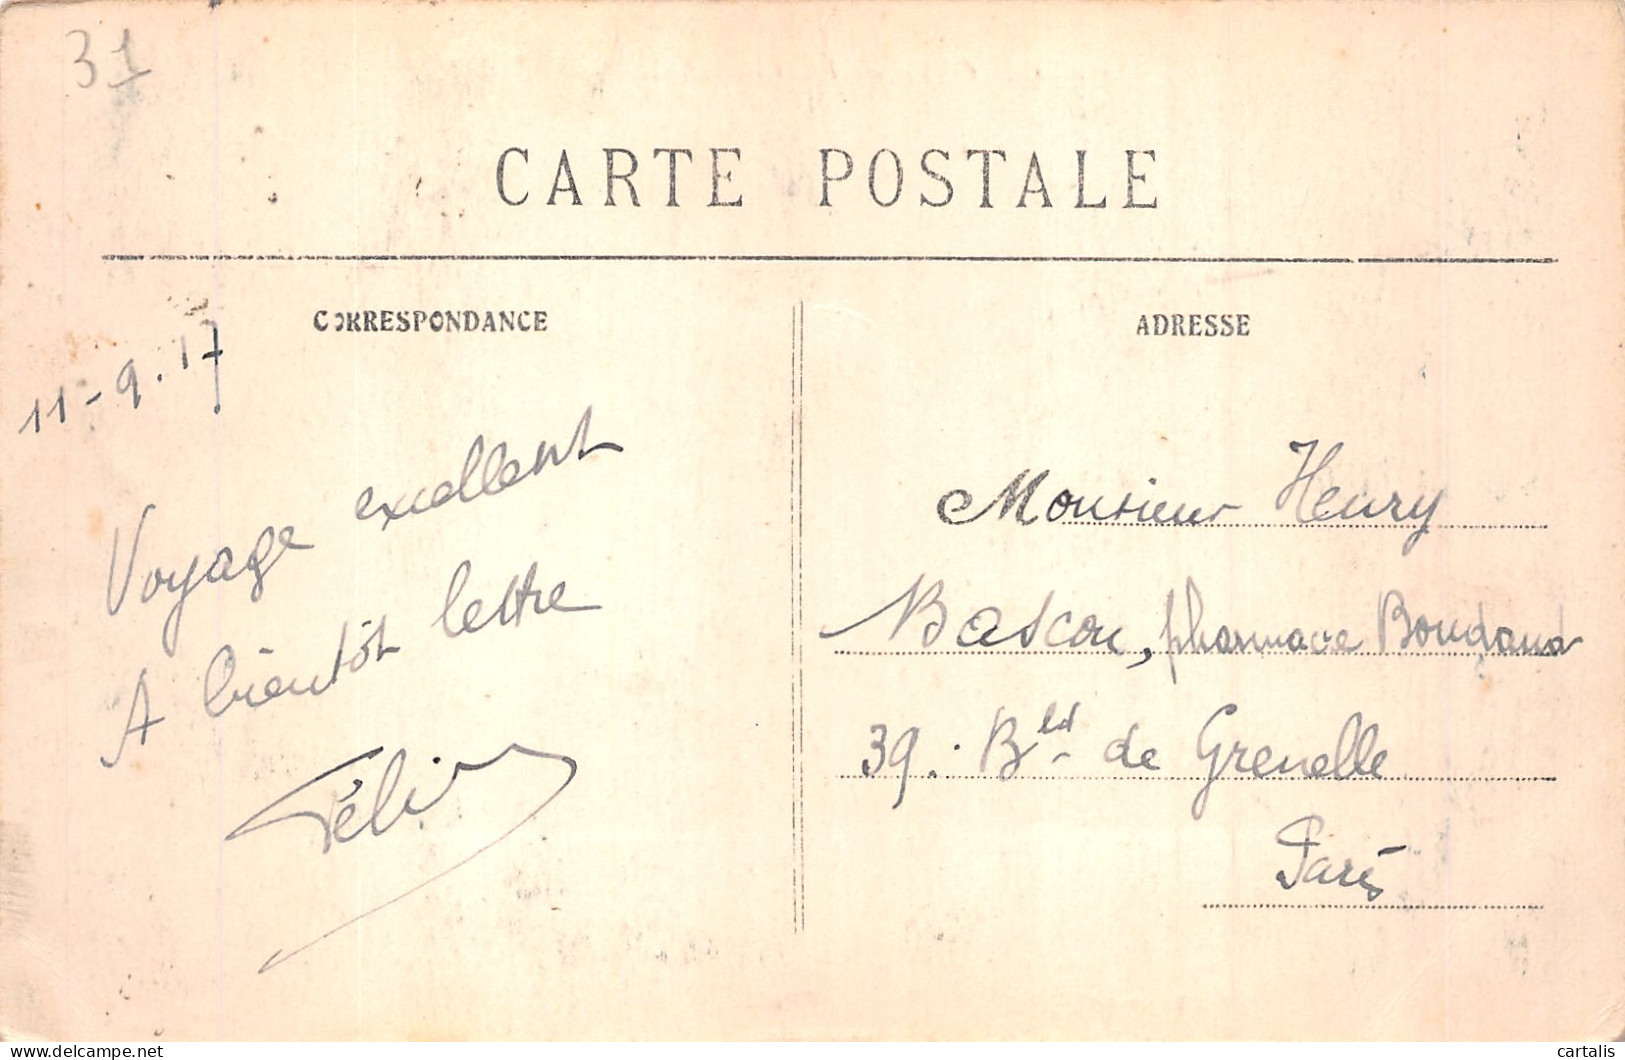 31
CARTE POSTALE
CORRESPONDANCE
11-9.17
Voyage excellent
A bientôt lettre
Félix
ADRESSE
Monsieur Henry
Bascou, pharmacie
39. Bld de Grenelle
Paris
www.delcampe.net
cartalis